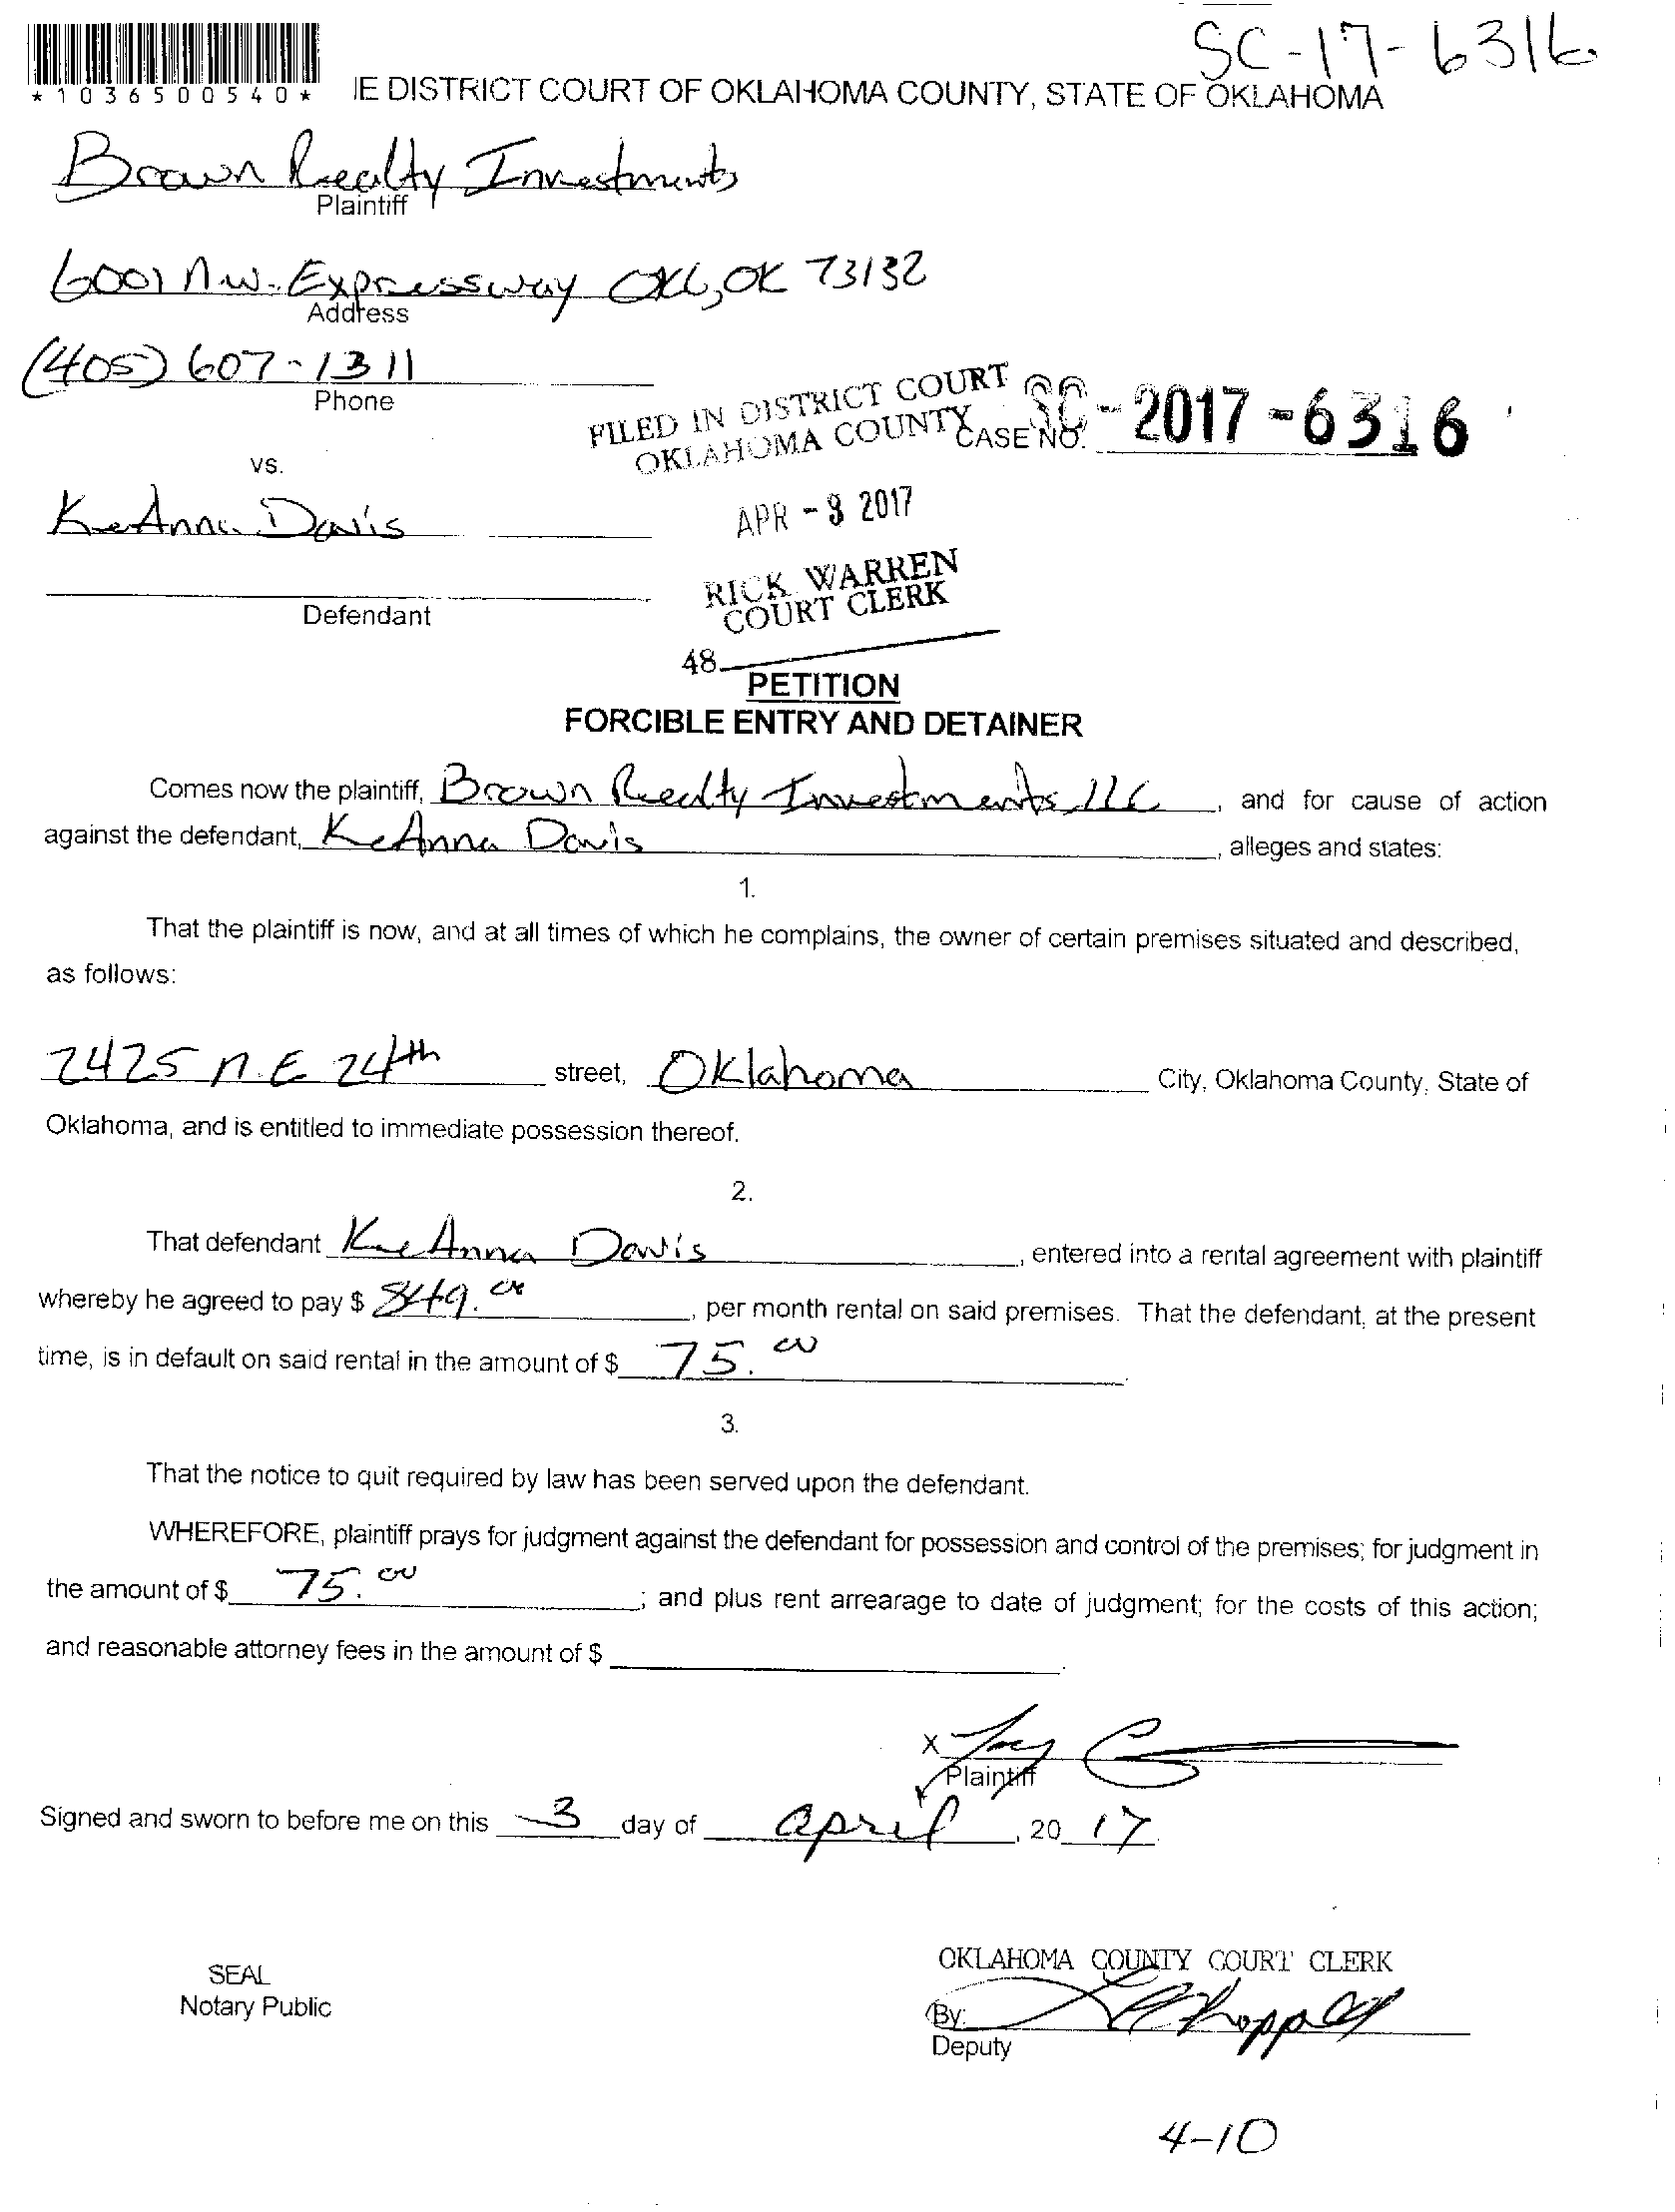 SC-17-6316
*1036500540*
IE DISTRICT COURT OF OKLAHOMA COUNTY, STATE OF OKLAHOMA
Brown Realty Investments
Plaintiff
6001 N.W. Expressway OKC, OK 73132
Address
(405) 607-1311
Phone
FILED IN DISTRICT COURT
OKLAHOMA COUNTY
CASE NO. SC-2017-6316
vs.
KeAnna Davis
APR -3 2017
RICK WARREN
COURT CLERK
Defendant
48
PETITION
FORCIBLE ENTRY AND DETAINER
Comes now the plaintiff, Brown Realty Investments, LLC, and for cause of action
against the defendant, KeAnna Davis, alleges and states:
1.
That the plaintiff is now, and at all times of which he complains, the owner of certain premises situated and described,
as follows:
2425 N.E 24th street, Oklahoma City, Oklahoma County, State of
Oklahoma, and is entitled to immediate possession thereof.
2.
That defendant KeAnna Davis, entered into a rental agreement with plaintiff
whereby he agreed to pay $ 849.00, per month rental on said premises. That the defendant, at the present
time, is in default on said rental in the amount of $ 75.00.
3.
That the notice to quit required by law has been served upon the defendant.
WHEREFORE, plaintiff prays for judgment against the defendant for possession and control of the premises; for judgment in
the amount of $ 75.00; and plus rent arrearage to date of judgment; for the costs of this action;
and reasonable attorney fees in the amount of $ .
X
Plaintiff
Signed and sworn to before me on this 3 day of april, 20 17
OKLAHOMA COUNTY COURT CLERK
SEAL
Notary Public
By:
Deputy
4-10